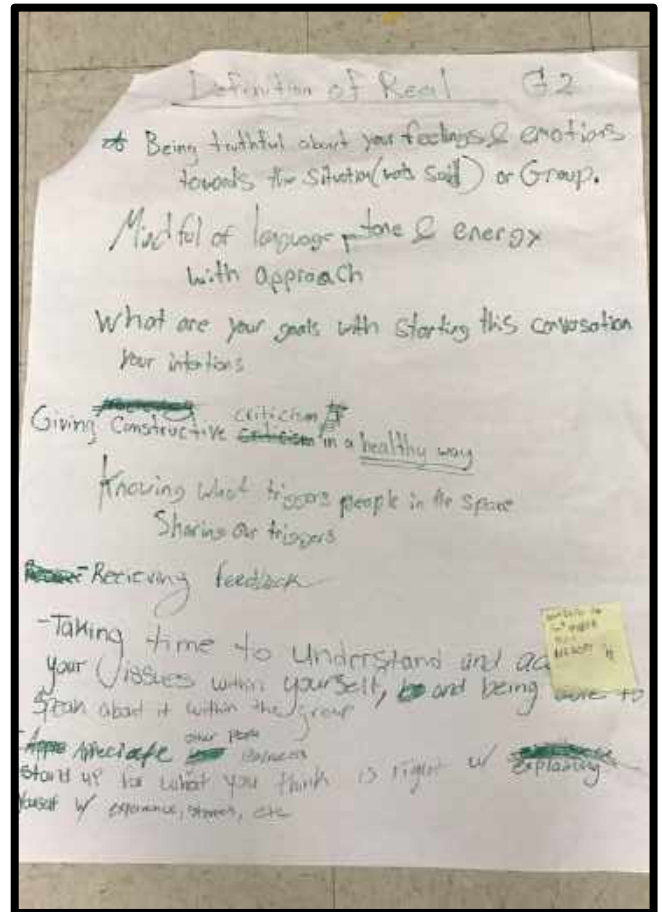 Definition of Real G2
Being truthful about your feelings & emotions
towards the situation (wats said) or Group.
Mindful of language, tone & energy
with approach
What are your goals with starting this conversation
your intentions
criticism
Giving Constructive in a healthy way
Knowing what triggers people in the space
Sharing our triggers
- Recieving feedback
- Taking time to understand and
your issues within yourself, and being to
speak about it within the group
other
- Appreciate
Stand up for what you think is right w/ explaining
yourself w/ experience, stories, etc